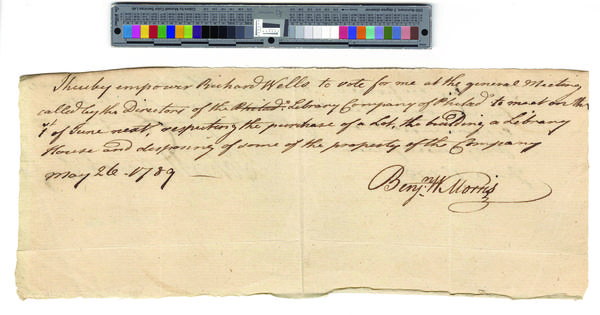 I hereby empower Richard Wells to vote for me at the general Meeting
called by the Directors of the Philada. Library Company of Philada. to meet on the
1st of June next, respecting the purchase of a Lot, the building a Library
House and disposing of some of the property of the Company
May 26 - 1789
Benjn. W Morris